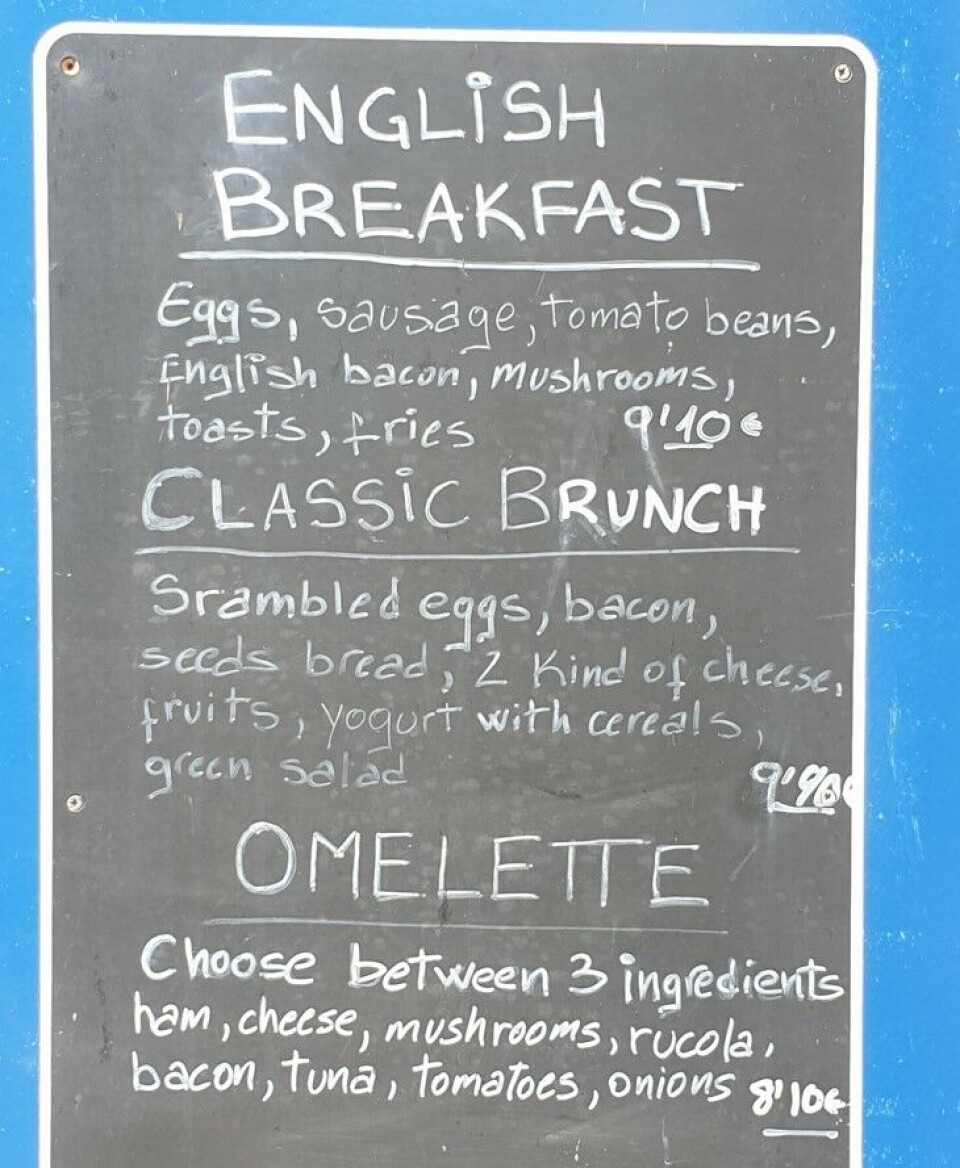 ENGLISH
BREAKFAST
Eggs, sausage, tomato beans,
English bacon, mushrooms,
toasts, fries 9'10€
CLASSIC BRUNCH
Srambled eggs, bacon,
seeds bread, 2 Kind of cheese,
fruits, yogurt with cereals,
green salad
OMELETTE
Choose between 3 ingredients
ham, cheese, mushrooms, rucola,
bacon, tuna, tomatoes, onions 8'10€